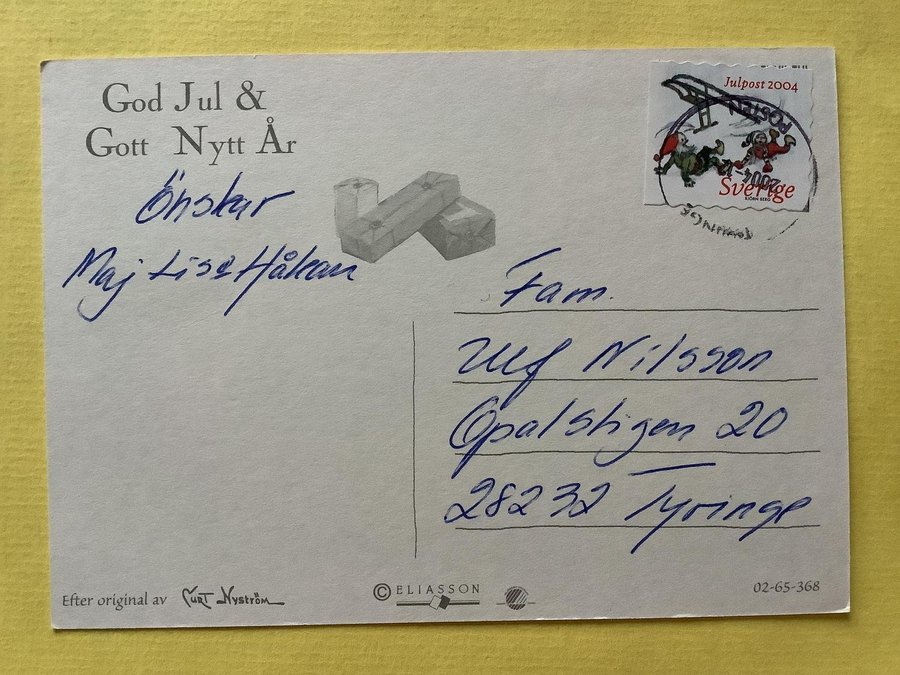 God Jul &
Gott Nytt År
Önskar
Maj Lise Håkan
Julpost 2004
POSTEN
2004-12
Sverige
BJÖRN BERG
Fam.
Ulf Nilsson
Opalstigen 20
28232 Tyringe
Efter original av Curt Nyström
© ELIASSON
02-65-368